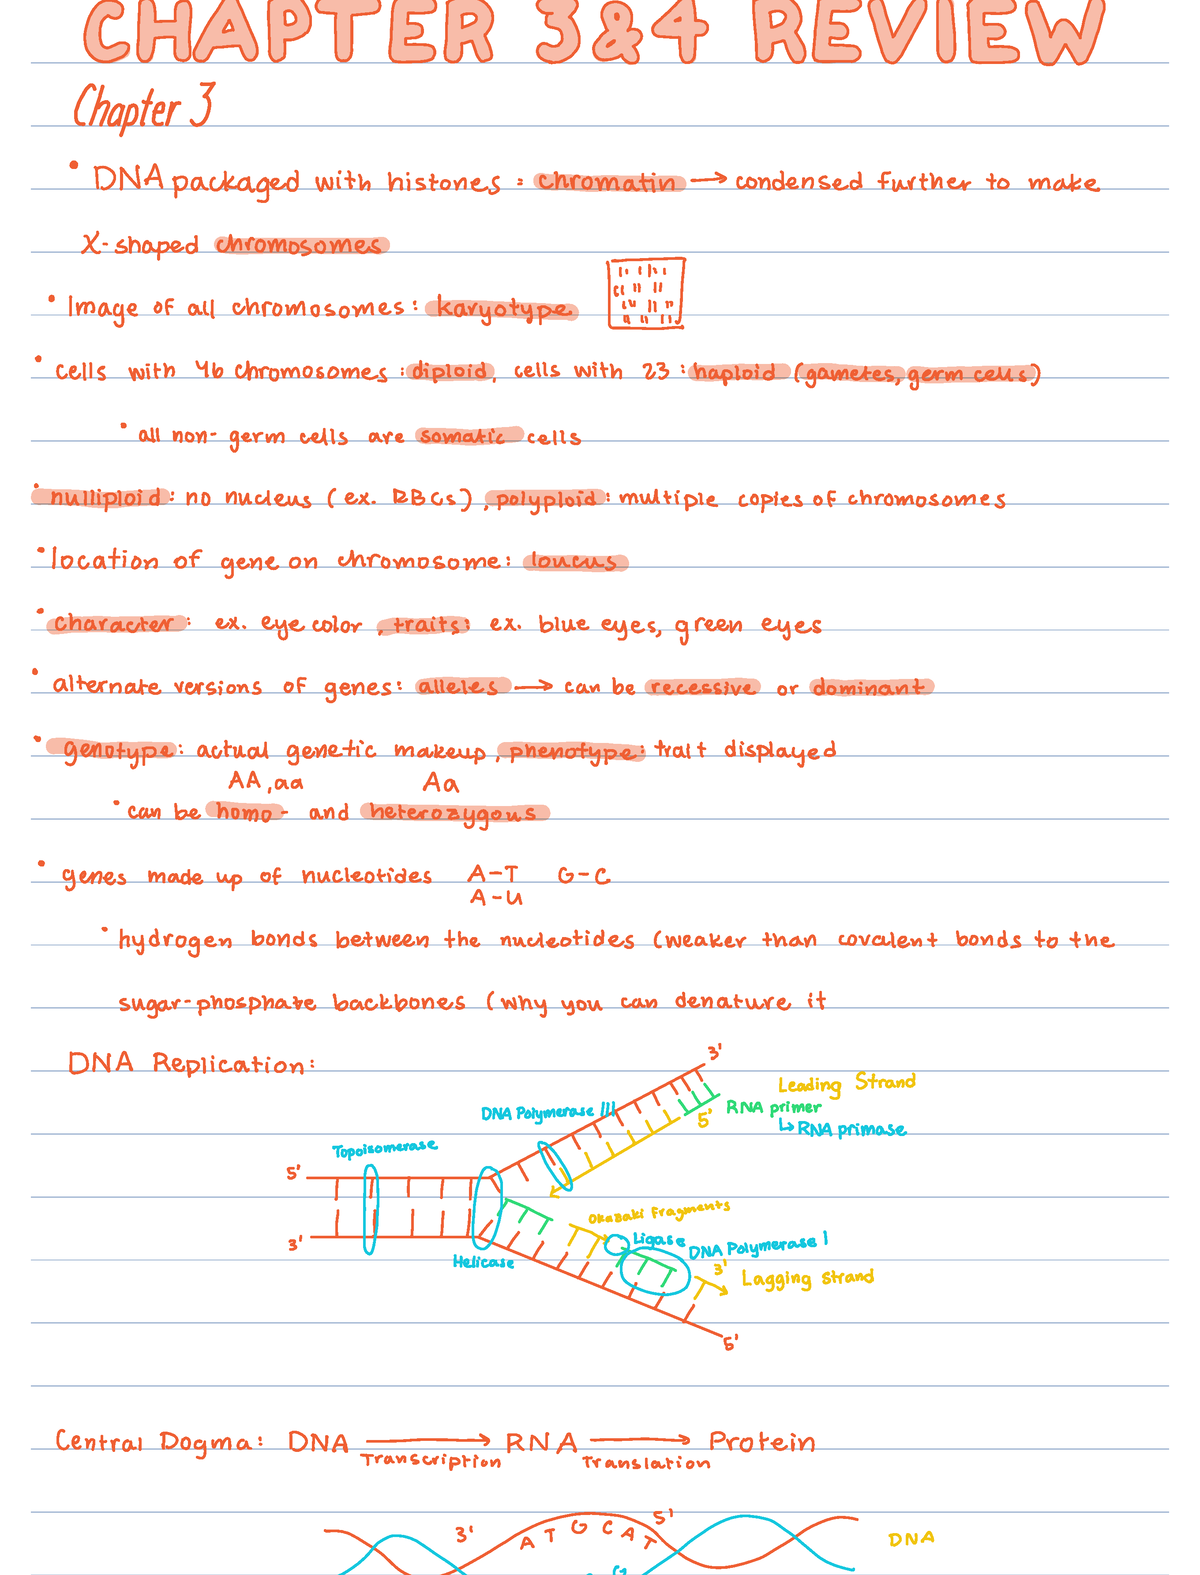 CHAPTER 3&4 REVIEW
Chapter 3
• DNA packaged with histones = chromatin → condensed further to make
X-shaped chromosomes
• Image of all chromosomes: karyotype
• cells with 46 chromosomes: diploid, cells with 23: haploid (gametes, germ cells)
• all non-germ cells are somatic cells
• nulliploid: no nucleus (ex. RBCs), polyploid: multiple copies of chromosomes
• location of gene on chromosome: loucus
• character: ex. eye color, traits: ex. blue eyes, green eyes
• alternate versions of genes: alleles → can be recessive or dominant
• genotype: actual genetic makeup, phenotype: trait displayed
AA, aa Aa
• can be homo- and heterozygous
• genes made up of nucleotides A-T G-C
A-U
• hydrogen bonds between the nucleotides (weaker than covalent bonds to the
sugar-phosphate backbones (why you can denature it
DNA Replication:
3'
Leading Strand
DNA Polymerase III
5'
RNA primer
↳ RNA primase
Topoisomerase
5'
3'
Helicase
Okazaki Fragments
Ligase
DNA Polymerase I
3'
Lagging Strand
5'
Central Dogma: DNA → RNA → Protein
Transcription Translation
3' A T G C A T 5'
DNA
G